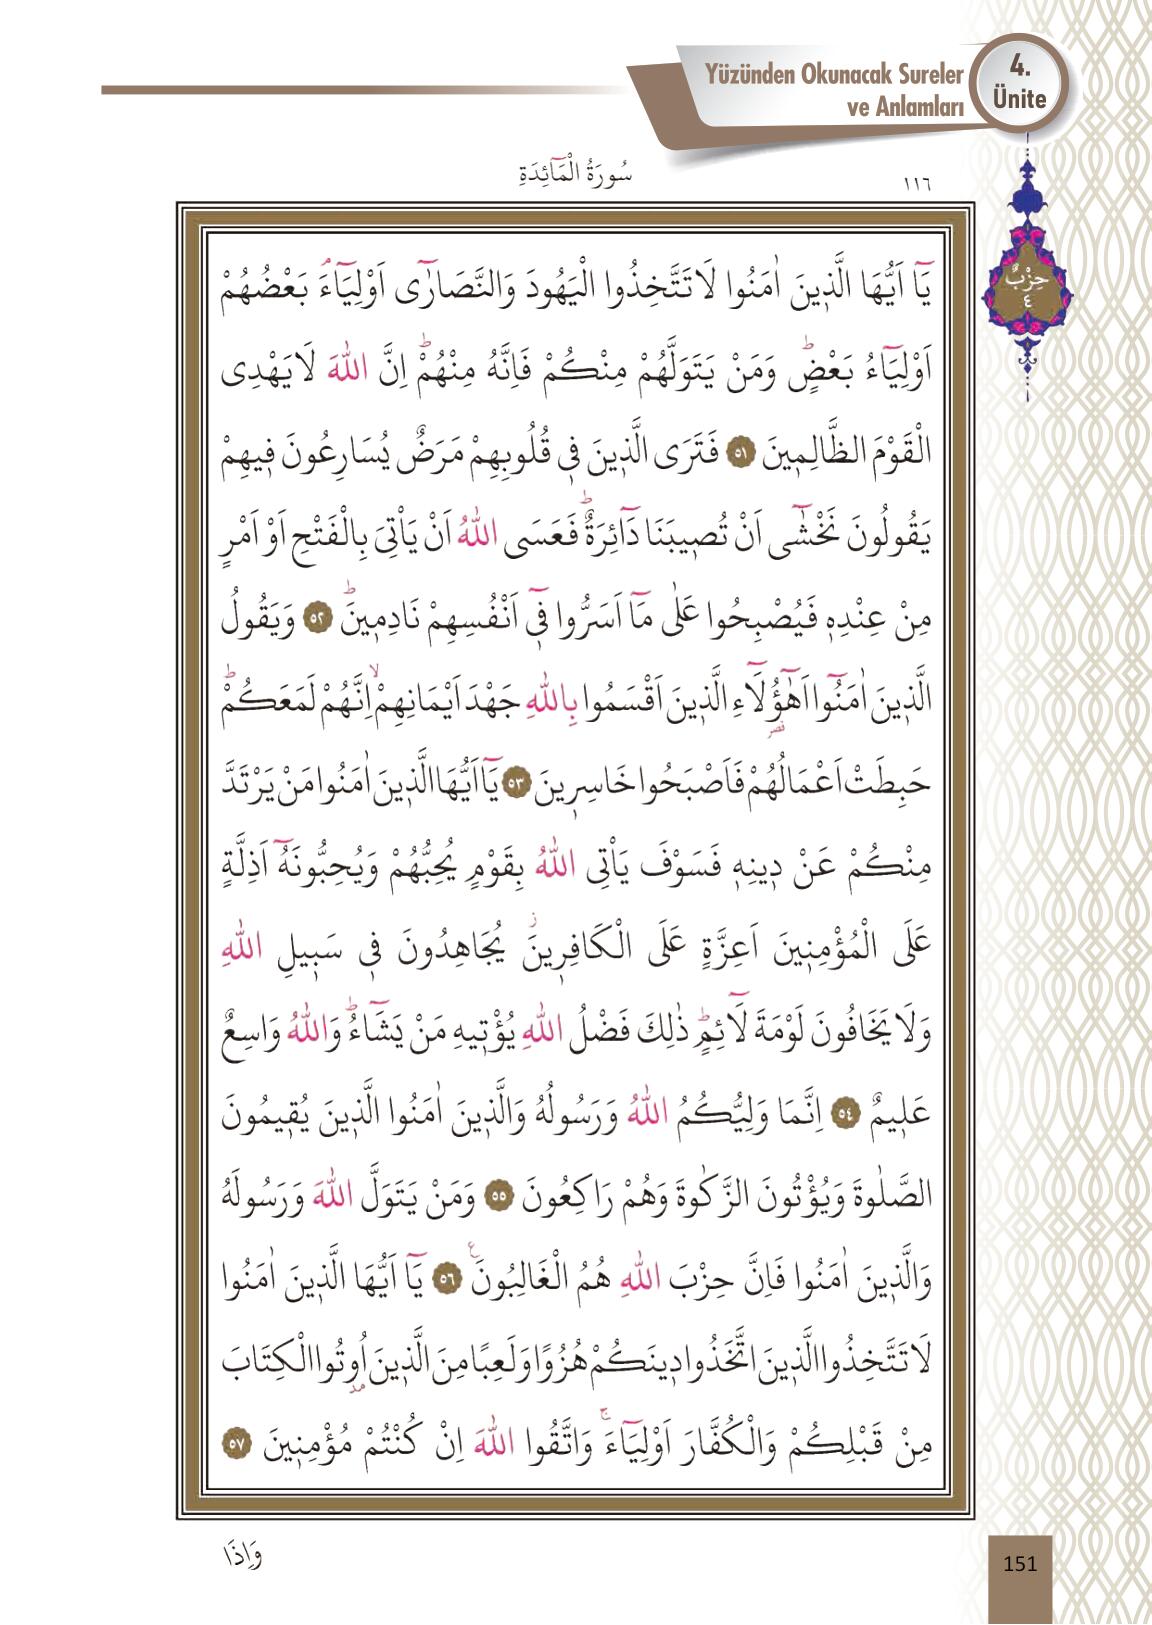 Yüzünden Okunacak Sureler
ve Anlamları
4.
Ünite
سُورَةُ الْمَٓائِدَةِ
١١٦
حِزْبٌ
٤
يَٓا اَيُّهَا الَّذ۪ينَ اٰمَنُوا لَا تَتَّخِذُوا الْيَهُودَ وَالنَّصَارٰٓى اَوْلِيَٓاءَۢ بَعْضُهُمْ
اَوْلِيَٓاءُ بَعْضٍۜ وَمَنْ يَتَوَلَّهُمْ مِنْكُمْ فَاِنَّهُ مِنْهُمْۜ اِنَّ اللّٰهَ لَا يَهْدِي
الْقَوْمَ الظَّالِم۪ينَ ﴿٥١﴾ فَتَرَى الَّذ۪ينَ ف۪ي قُلُوبِهِمْ مَرَضٌ يُسَارِعُونَ ف۪يهِمْ
يَقُولُونَ نَخْشٰٓى اَنْ تُص۪يبَنَا دَٓائِرَةٌۜ فَعَسَى اللّٰهُ اَنْ يَأْتِيَ بِالْفَتْحِ اَوْ اَمْرٍ
مِنْ عِنْدِه۪ فَيُصْبِحُوا عَلٰى مَٓا اَسَرُّوا ف۪ٓي اَنْفُسِهِمْ نَادِم۪ينَۜ ﴿٥٢﴾ وَيَقُولُ
الَّذ۪ينَ اٰمَنُٓوا اَهٰٓؤُ۬لَٓاءِ الَّذ۪ينَ اَقْسَمُوا بِاللّٰهِ جَهْدَ اَيْمَانِهِمْۙ اِنَّهُمْ لَمَعَكُمْۜ
حَبِطَتْ اَعْمَالُهُمْ فَاَصْبَحُوا خَاسِر۪ينَ ﴿٥٣﴾ يَٓا اَيُّهَا الَّذ۪ينَ اٰمَنُوا مَنْ يَرْتَدَّ
مِنْكُمْ عَنْ د۪ينِه۪ فَسَوْفَ يَأْتِي اللّٰهُ بِقَوْمٍ يُحِبُّهُمْ وَيُحِبُّونَهُٓ اَذِلَّةٍ
عَلَى الْمُؤْمِن۪ينَ اَعِزَّةٍ عَلَى الْكَافِر۪ينَۘ يُجَاهِدُونَ ف۪ي سَب۪يلِ اللّٰهِ
وَلَا يَخَافُونَ لَوْمَةَ لَٓائِمٍۜ ذٰلِكَ فَضْلُ اللّٰهِ يُؤْت۪يهِ مَنْ يَشَٓاءُۜ وَاللّٰهُ وَاسِعٌ
عَل۪يمٌ ﴿٥٤﴾ اِنَّمَا وَلِيُّكُمُ اللّٰهُ وَرَسُولُهُ وَالَّذ۪ينَ اٰمَنُوا الَّذ۪ينَ يُق۪يمُونَ
الصَّلٰوةَ وَيُؤْتُونَ الزَّكٰوةَ وَهُمْ رَاكِعُونَ ﴿٥٥﴾ وَمَنْ يَتَوَلَّ اللّٰهَ وَرَسُولَهُ
وَالَّذ۪ينَ اٰمَنُوا فَاِنَّ حِزْبَ اللّٰهِ هُمُ الْغَالِبُونَ۟ ﴿٥٦﴾ يَٓا اَيُّهَا الَّذ۪ينَ اٰمَنُوا
لَا تَتَّخِذُوا الَّذ۪ينَ اتَّخَذُوا د۪ينَكُمْ هُزُوًا وَلَعِبًا مِنَ الَّذ۪ينَ اُو۫تُوا الْكِتَابَ
مِنْ قَبْلِكُمْ وَالْكُفَّارَ اَوْلِيَٓاءَۚ وَاتَّقُوا اللّٰهَ اِنْ كُنْتُمْ مُؤْمِن۪ينَ ﴿٥٧﴾
وَاِذَا
151